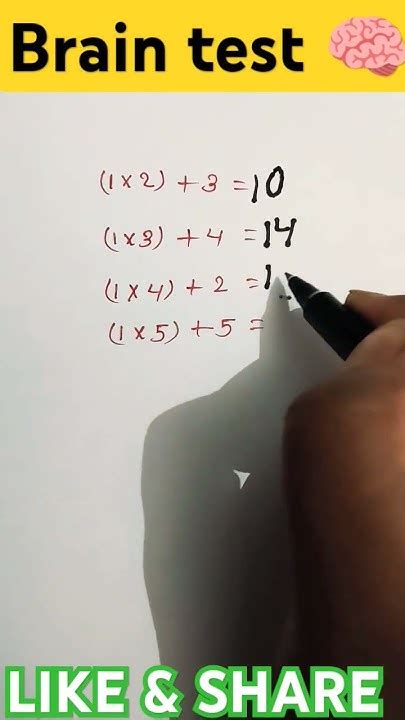 Brain test 🧠
(1 x 2) + 3 = 10
(1 x 3) + 4 = 14
(1 x 4) + 2 = 1
(1 x 5) + 5 =
LIKE & SHARE